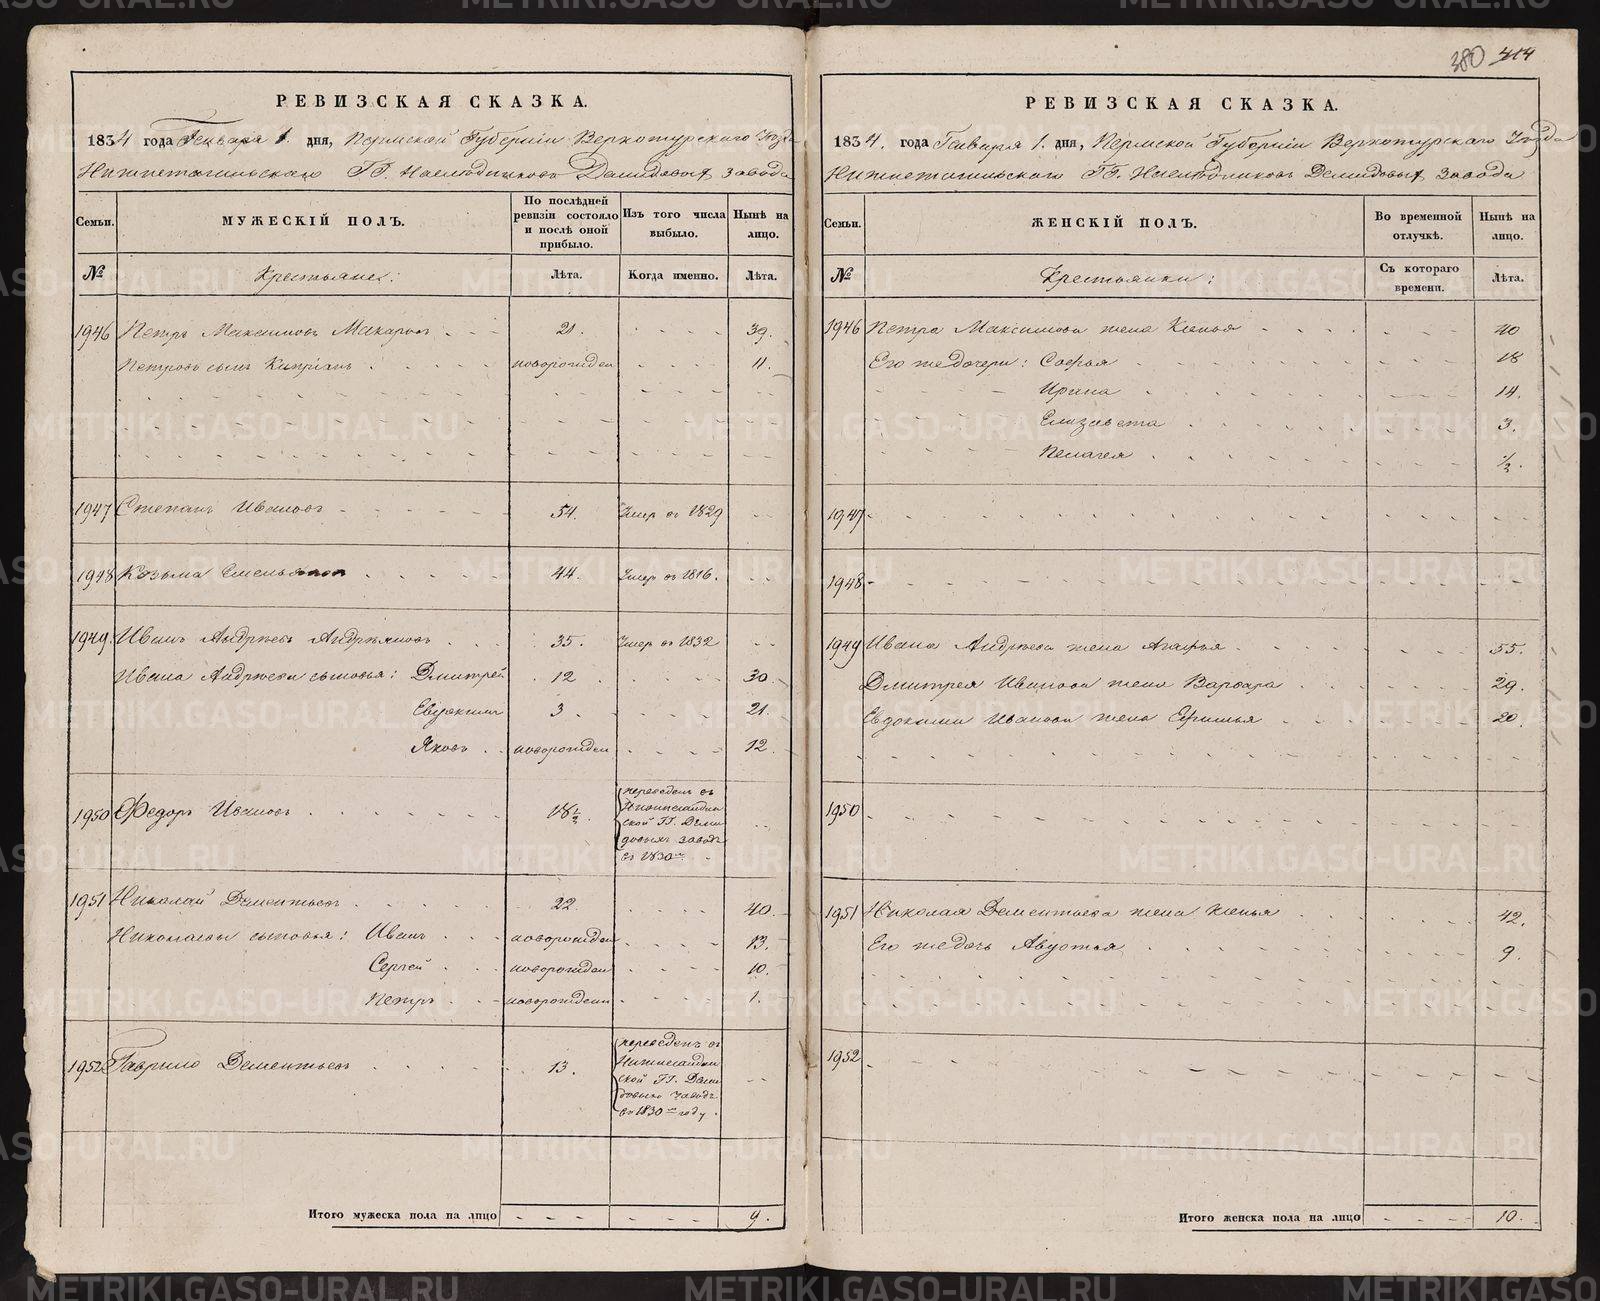 380 414
РЕВИЗСКАЯ СКАЗКА.
1834 года Генваря 1. дня, Пермской Губерніи Верхотурскаго Уѣзда
Нижнетагильскаго ГГ. Наслѣдниковъ Демидовыхъ завода
Семьи.
МУЖЕСКІЙ ПОЛЪ.
По послѣдней ревизіи состояло и послѣ оной прибыло.
Изъ того числа выбыло.
Нынѣ на лицо.
№
Крестьяне:
Лѣта.
Когда именно.
Лѣта.
1946 Петръ Максимовъ Макаровъ 21. 39.
Петровъ сынъ Кипріянъ новорожден 11.
1947 Степанъ Ивановъ 54. Умер въ 1829
1948 Козьма Емельянов 44. Умер въ 1816.
1949. Иванъ Андрѣевъ Андріяновъ 35. Умер въ 1832
Ивана Андрѣева сыновья: Дмитрей 12 30
Евдокимъ 3 21.
Яковъ новорожден 12
1950 Федоръ Ивановъ 18½. переведенъ въ Нижнесалдинской ГГ. Демидовыхъ заводъ въ 1830м
1951 Николай Дементьевъ 22 40.
Николаевы сыновья: Иванъ новорожден 13.
Сергей новорожден 10.
Петръ новорожден 1.
1952 Гаврило Дементьевъ 13. переведенъ въ Нижнесалдинской ГГ. Демидовыхъ заводъ въ 1830м году.
Итого мужеска пола на лицо 9.
РЕВИЗСКАЯ СКАЗКА.
1834. года Генваря 1. дня, Пермской Губерніи Верхотурскаго Уѣзда
Нижнетагильскаго ГГ. Наслѣдниковъ Демидовыхъ завода
Семьи.
ЖЕНСКІЙ ПОЛЪ.
Во временной отлучкѣ.
Нынѣ на лицо.
№
Крестьянки:
Съ котораго времени.
Лѣта.
1946 Петра Максимова жена Ксенья 40
Его же дочери: Софья 18
Ирина 14.
Елизавета 3.
Пелагея ½.
1947
1948
1949 Ивана Андрѣева жена Агафья 55.
Дмитрея Иванова жена Варвара 29.
Евдокима Иванова жена Ефимья 20.
1950
1951 Николая Дементьева жена Ксенья 42.
Его же дочь Авдотья 9.
1952
Итого женска пола на лицо 10.
METRIKI.GASO-URAL.RU